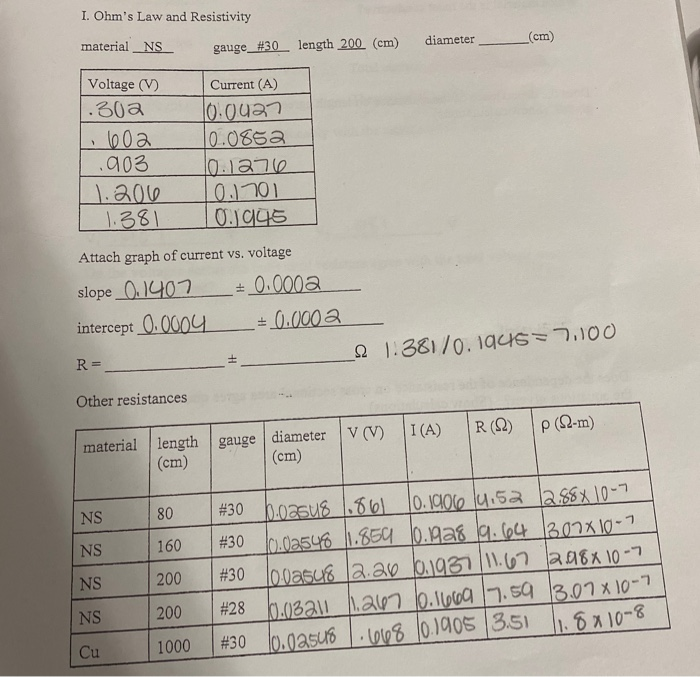 I. Ohm's Law and Resistivity
material NS gauge #30 length 200 (cm) diameter ______ (cm)
Voltage (V) Current (A)
.302 0.0427
.602 0.0852
.903 0.1276
1.206 0.1701
1.381 0.1945
Attach graph of current vs. voltage
slope 0.1407 ± 0.0002
intercept 0.0004 ± 0.0002
R = ______ ± ______ Ω 1.381/0.1945=7.100
Other resistances
material length (cm) gauge diameter (cm) V (V) I (A) R (Ω) ρ (Ω-m)
NS 80 #30 0.02548 .861 0.1906 4.52 2.88x10-7
NS 160 #30 0.02548 1.859 0.1928 9.64 3.07x10-7
NS 200 #30 0.02548 2.26 0.1937 11.67 2.98x10-7
NS 200 #28 0.03211 1.267 0.1669 7.59 3.07x10-7
Cu 1000 #30 0.02548 .668 0.1905 3.51 1.8x10-8